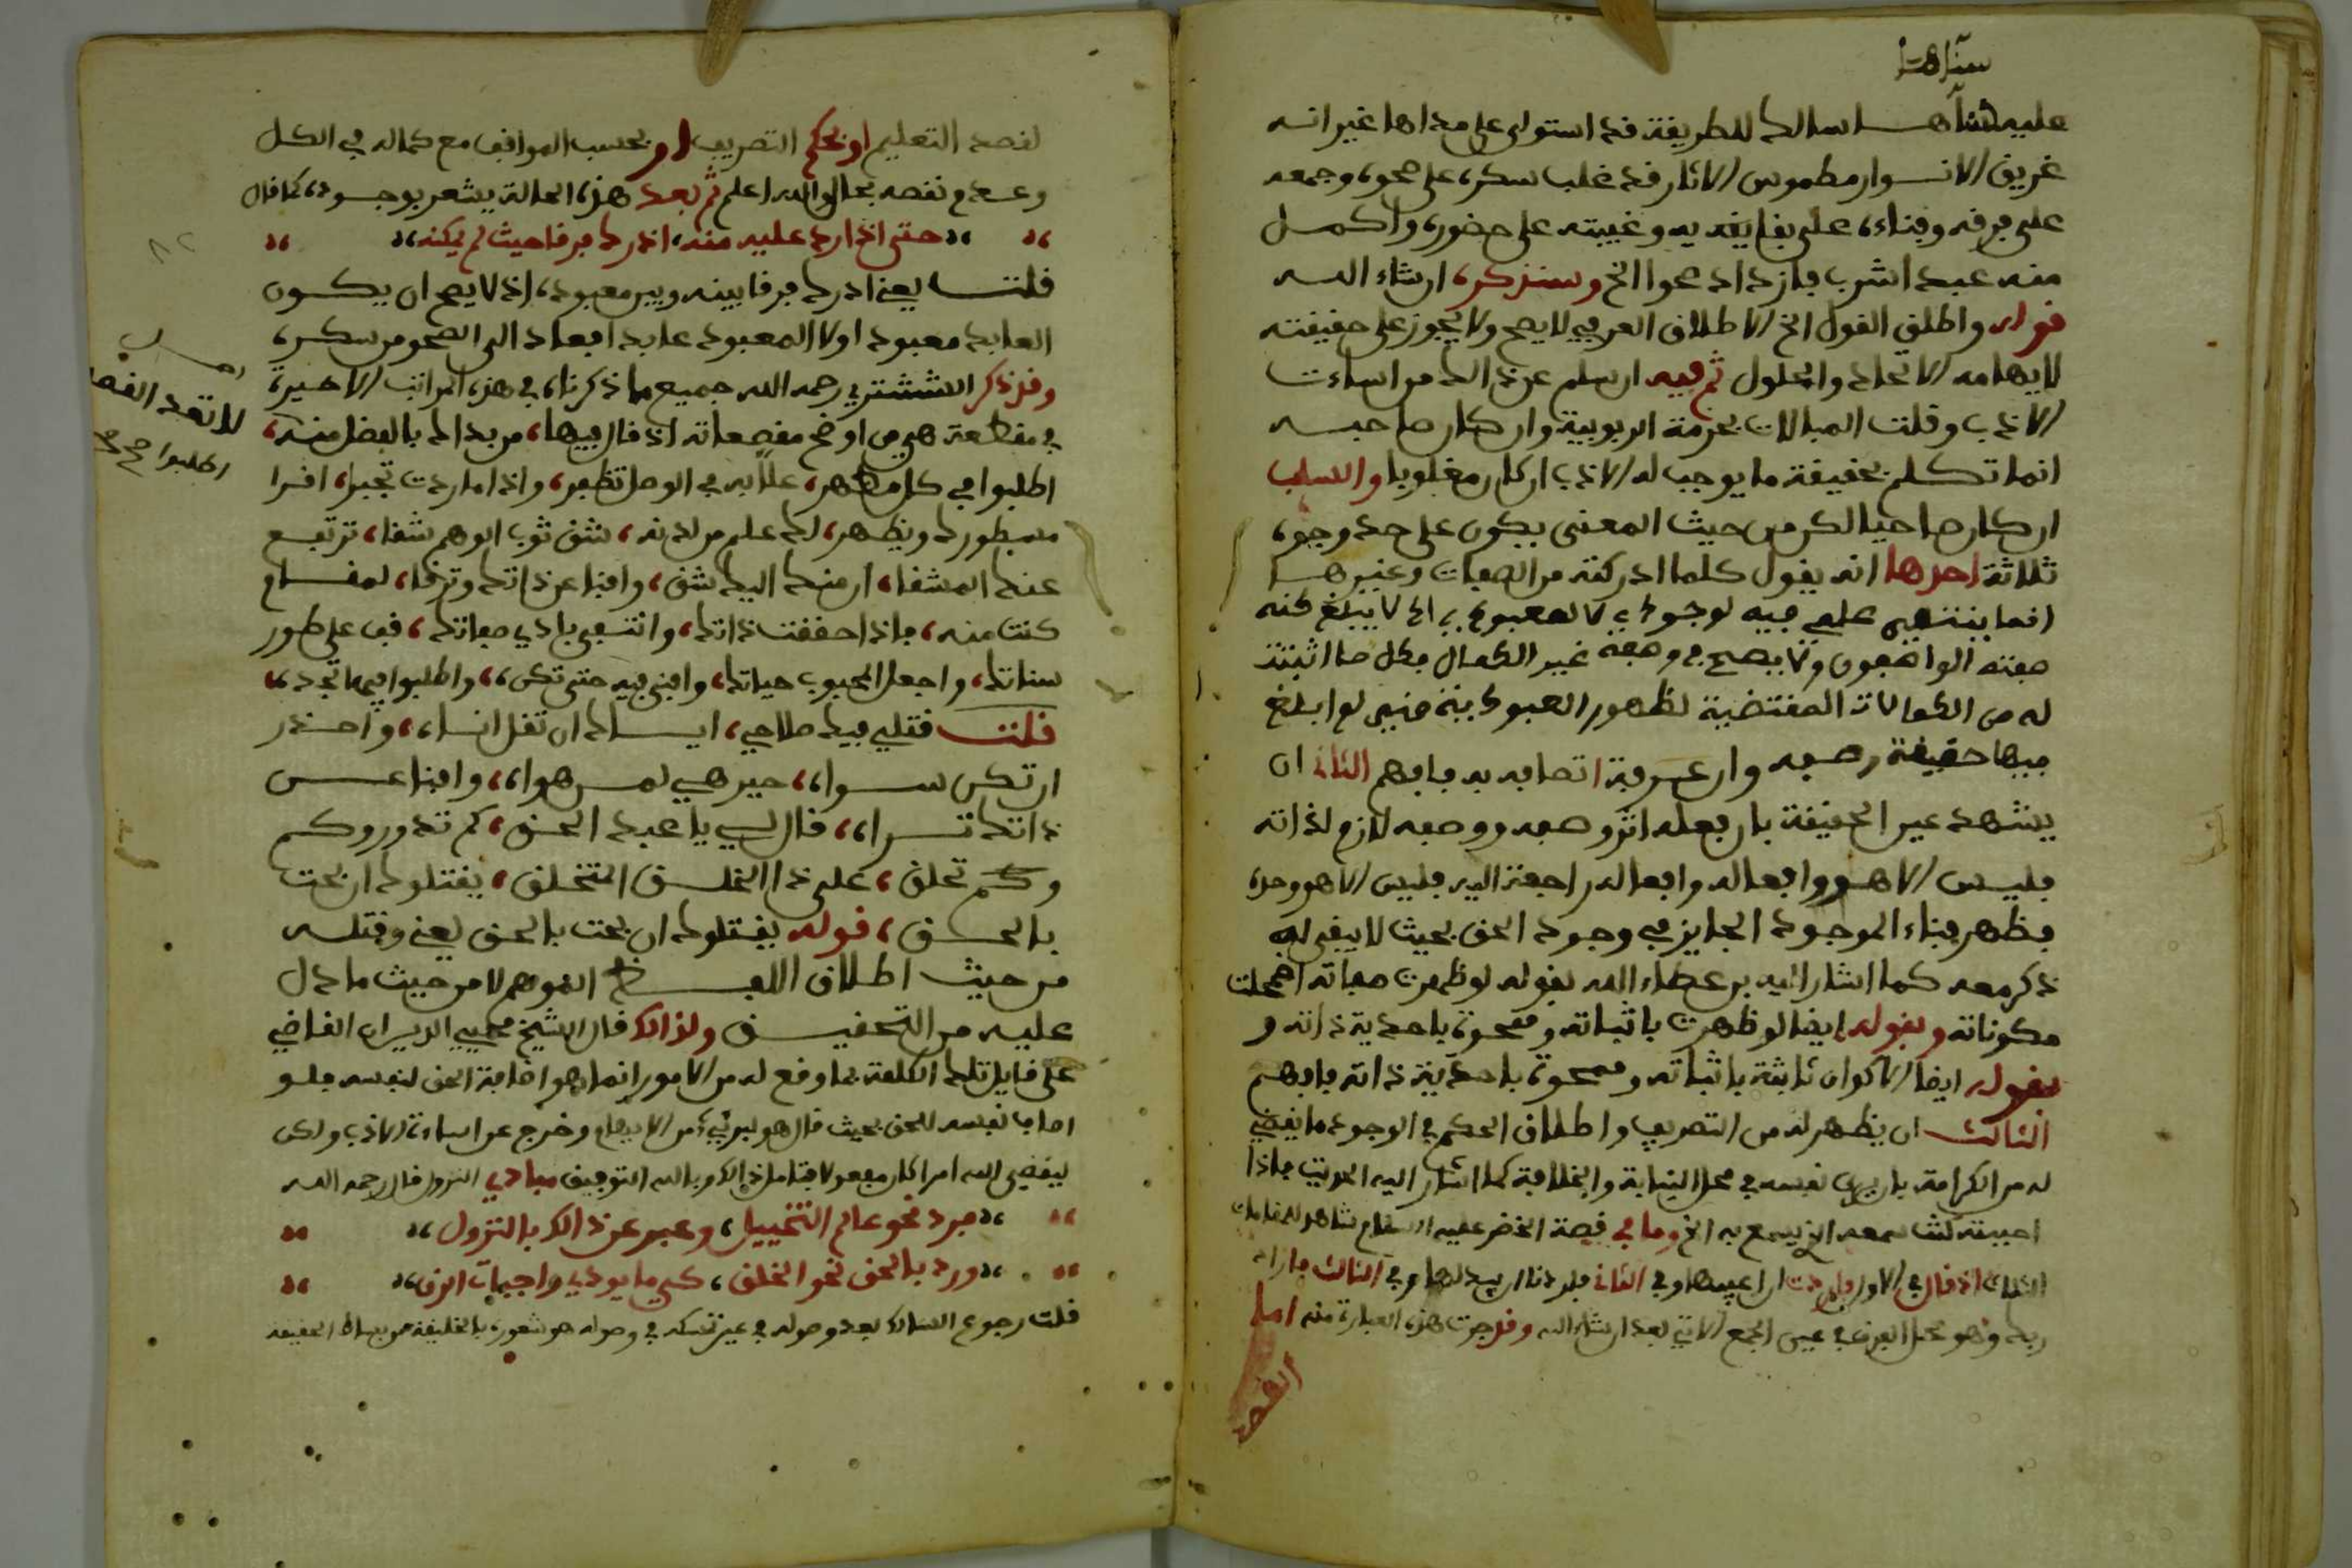 سناها
عليه سناها سالك للطريقة قد استولى على مداها غير انه
غريق الانوار مطموس الاثار قد غلب سكره على صحوه وجمعه
على فرقه وفناءه على بقايه وغيبته على حضوره واكمل
منه عبد شرب فازداد صحوا الخ وسنذكره ان شاء الله
قوله واطلق القول الخ الاطلاق العرفي لا يصح ولا يجوز على حقيقته
لايهامه الاتحاد والحلول ثم فيه ان سلم عن ذالك من اساءت
الادب وقلت المبالات بحرمة الربوبية وان كان صاحبه
انما تكلم بحقيقة ما يوجب له الادب ان كان مغلوبا والسلب
ان كان صاحيا لكن من حيث المعنى يكون على حد وجوه
ثلاثة احدها انه يقول كلما ادركته من الصفات وغيرها
انما ينتهي علمي فيه لوجودي لا لمعبودي اذ لا يبلغ كنه
صفته الواصفون ولا يصح في وصفه غير الكمال فكل ما اثبتت
له من الكمالات المقتضية لظهور العبودية فنيي لم ابلغ
فيها حقيقة وصفه وان عرفة اتصافه به فافهم الثاني ان
يشهد عين الحقيقة بان فعله اثر وصفه ووصفه لازم لذاته
فليس الا هو وافعاله وافعاله راجعة اليه فليس الا هو وحده
فظهر فناء الموجود الجايز في وجود الحق بحيث لا يبقى له
ذكر معه كما اشار اليه بن عطاء الله بقوله لو ظهرت صفاته اضمحلت
مكوناته وبقوله ايضا لو ظهرت باثباته وممحوة باحدية ذاته و
بقوله ايضا الاكوان ثابتة باثباته وممحوة باحدية ذاته فافهم
الثالث ان يظهر له من التصريف واطلاق الحكم في الوجود ما يقضي
له من الكرامة بان يرى نفسه في محل النيابة والخلافة كما اشار اليه الحديث فاذا
احببته كنت سمعه الذي يسمع به الخ وما في قصة الخضر عليه السلام شاهد للمقامات
الثلاثة اذ قال في الاول فاردت ان اعيبها وفي الثاني فاردنا ان يبدلهما وفي الثالث فاراد
ربك وهو محل الفرق في عين الجمع الاتي بعد ان شاء الله وقد جرت هذه العبارة منه اما
لقصد
لقصد التعليم او بحكم التصريف او بحسب المواقف مع كماله في الكل
وعدم نقصه بحال والله اعلم ثم بعد هذه الحالة يشعر بوجوده كما قال
حتى اذا رد عليه منه، ادرك فرقا حيث لم يكنه
قلت يعني ادرك فرقا بينه وبين معبوده، اذ لا يصح ان يكون
العابد معبودا ولا المعبود عابدا فعاد الى الصحو من سكره
وقد ذكر الششتري رحمه الله جميع ما ذكرناه في هذه المراتب الاخيرة
في مقطعة هي من اوضح مقصداته اذ قال فيها، من بداك بالفضل منه،
لا تعد القصد
اطلبوا صح
اطلبوا في كل مظهر، علابه في الوصل تظفر، واذا ما اردت تخبرا، اقرا
مسطورك ويظهر، لك علم من لدنه، شق ثوب الوهم شقا، ترتفع
عنك المشقا، ان منك اليك شق، وافنا عن ذاتك وترقا، لمقام
كنت منه، فاذا حققت ذاتك، وانتفى بادي صفاتك، قف على طور
سناتك، واجعل المحبوب حياتك، وافنى فيه حتى تكن، واطلبوا فيها تجد
قلت قتلي فيك صلاحي، اياك ان تقل انا، واحذر
ان تكن سواه، حير هي لمن هواه، وافنا عن
ذاتك تراه، قال لي يا عبد الحق، كم تدور وكم
وكم تحلق، على ذا الخلق المتخلق، يقتلوك ان بحت
بالحق، قوله يقتلوك ان بحت بالحق يعني وقتله
من حيث اطلاق اللفظ الموهم لا من حيث ما دل
عليه من التحقيق ولذالك قال الشيخ محيي الدين ان القاضي
على قايل تلك الكلمة بما وقع له من الامور انما هو اضافة الحق لنفسه فلو
اضاف نفسه للحق بحيث قال هو لبرئ من الايهام وخرج عن اساءة الادب ولكن
ليقضي الله امرا كان مفعولا فتامل ذالك وبالله التوفيق مبادي النزول قال رحمه الله
فرد نحو عالم التخييل، وعبر عن ذالك بالنزول
ورد بالحق نحو الخلق، كي ما يودي واجبات الرق
قلت رجوع السالك بعد وصوله في عين تمسكه في وصوله هو شعوره بالخليقة من بساط الحقيقة